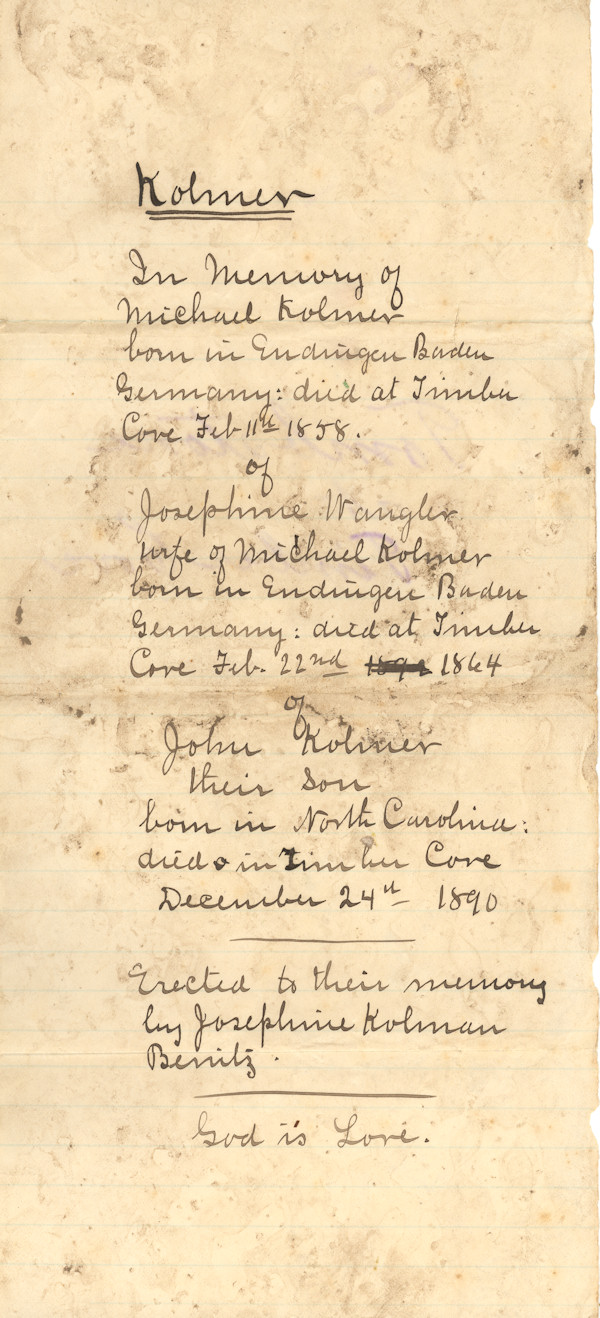 Kolmer
In Memory of
Michael Kolmer
born in Endingen Baden
Germany: died at Timber
Cove Feb 11th 1858.
of
Josephine Wangler
wife of Michael Kolmer
born in Endingen Baden
Germany: died at Timber
Cove Feb. 22nd 1864
of
John Kolmer
their Son
born in North Carolina:
died in Timber Cove
December 24th 1890
Erected to their memory
by Josephine Kolman
Benitz.
God is Love.